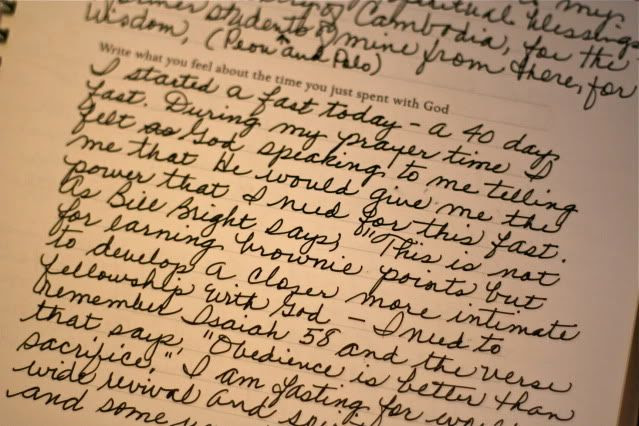 of my
of Cambodia, for the
former students of mine from there, for
Wisdom, (Peou and Polo)
Write what you feel about the time you just spent with God
I started a fast today - a 40 day
fast. During my prayer time I
felt as God speaking to me telling
me that He would give me the
power that I need for this fast.
As Bill Bright says, "This is not
for earning brownie points but
to develop a closer more intimate
fellowship with God - I need to
remember Isaiah 58 and the verse
that says, "Obedience is better than
sacrifice." I am fasting for world
wide revival and
and some